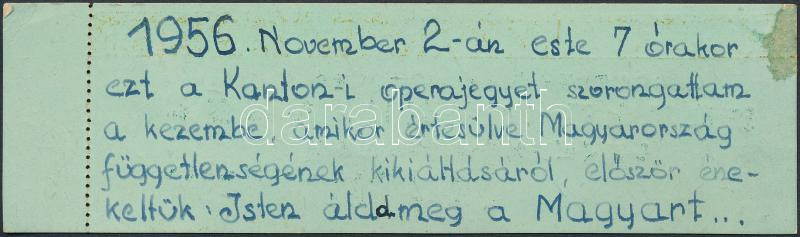 1956. November 2-án este 7 órakor
ezt a Kanton-i operajegyet szorongattam
a kezembe, amikor értesülve Magyarország
függetlenségének kikiáltásáról, először éne-
keltük: Isten áldd meg a Magyart...
darabanth